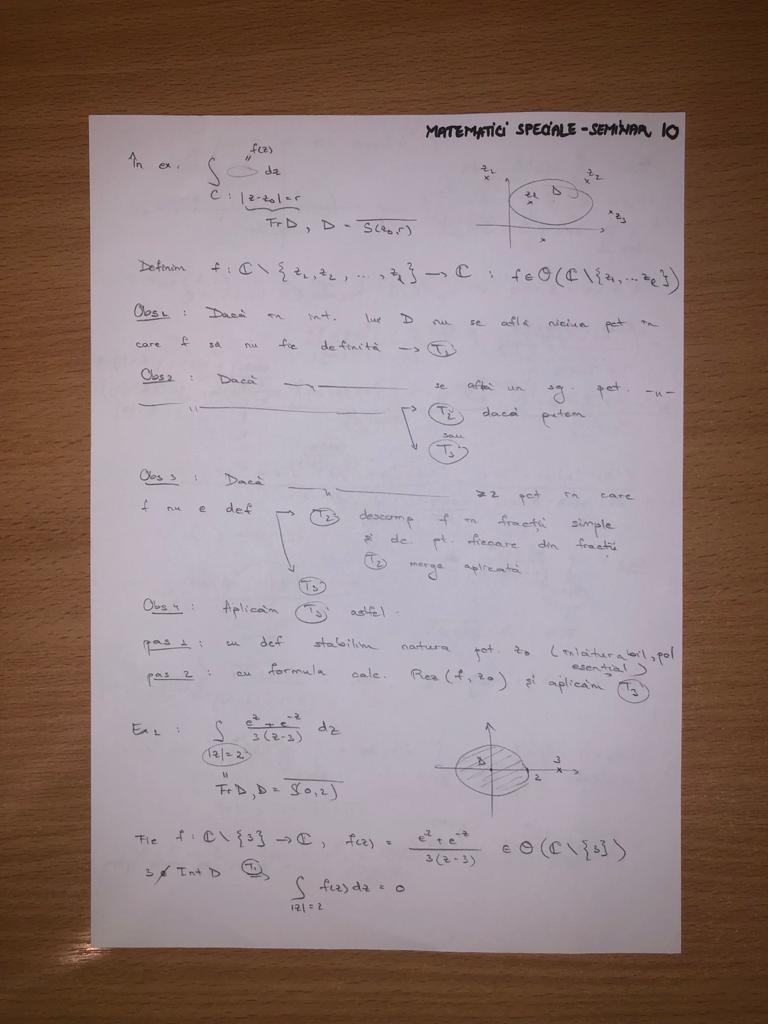 MATEMATICI SPECIALE - SEMINAR 10
În ex. ∫ dz
f(z)
"
C : |z-z₀|=r
Fr D, D = S(z₀,r)
z₁ z₂
D
z₃
Definim f : C \ { z₁, z₂, ..., zₗ } → C : f ∈ O(C \ {z₁, ... zₗ})
Obs 1 : Dacă în int. lui D nu se află niciun pct în
care f să nu fie definită → T₁
Obs 2 : Dacă —"— se află un sg. pct. -"-
—"— T₂ dacă putem
sau
T₃
Obs 3 : Dacă —"— ≥2 pct în care
f nu e def → T₂ descomp f în fracții simple
și dc. pt. fiecare din fracții
T₂ merge aplicată
T₃
Obs 4 : Aplicăm T₃ astfel.
pas 1 : cu def stabilim natura pct. z₀ (înlăturabil, pol
esențial)
pas 2 : cu formula calc. Rez (f, z₀) și aplicăm T₃
Ex 1 : ∫ (e^z + e^-z) / 3(z-3) dz
|z|=2
"
Fr D, D = S(0,2)
D 2 3
Fie f : C \ {3} → C, f(z) = (e^z + e^-z) / 3(z-3) ∈ O(C \ {3})
3 ∉ Int D T₁
∫ f(z) dz = 0
|z|=2